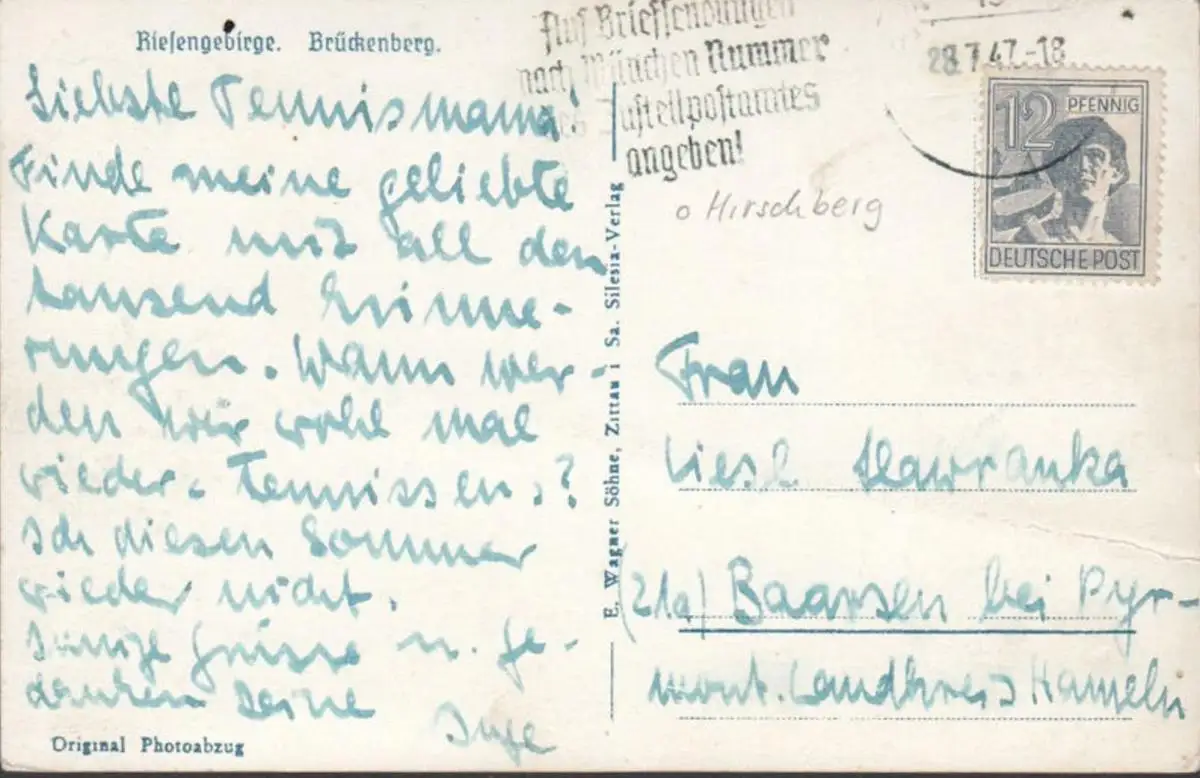 Riesengebirge. Brückenberg.
Liebste Tennismama!
Finde meine geliebte
Karte mit all den
tausend Erinne-
rungen. Wann wer-
den wir wohl mal
wieder tennissen?
Ich diesen Sommer
wieder nicht.
Grüsse u. Ge-
danken Deine
Inge
Original Photoabzug
E. Wagner Söhne, Zittau i Sa. Silesia-Verlag
Auf Briefsendungen
nach München Nummer
des Zustellpostamtes
angeben!
28.7.47.-18
12 PFENNIG
DEUTSCHE POST
o Hirschberg
Frau
Liesl Hawranka
(21a) Baarsen bei Pyr-
mont. Landkreis Hameln